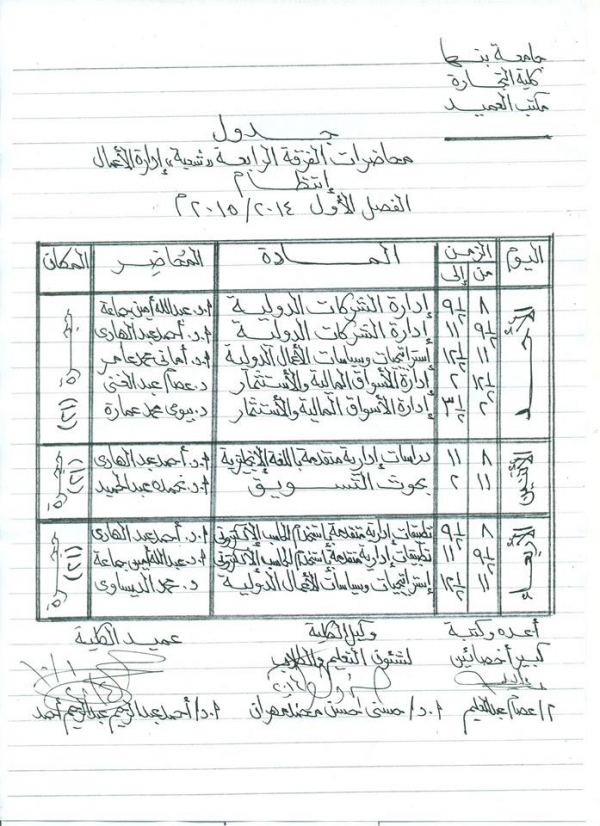 جامعة بنها
كلية التجارة
مكتب العميد
جدول
محاضرات الفرقة الرابعة "شعبة" إدارة الأعمال
إنتظام
الفصل الأول ٢٠١٤/٢٠١٥م
اليوم الزمن المادة المحاضر المكان
من إلى
٨ ٩½ إدارة الشركات الدولية أ.د. عبدالله أمين جماعة
٩½ ١١ إدارة الشركات الدولية أ.د. أحمد عبدالهادى
١١ ١٢½ إستراتيجيات وسياسات الأعمال الدولية أ.د أمانى محمد عامر
١٢½ ٢ إدارة الأسواق المالية والأستثمار د. عصام عبدالغنى
٢ ٣½ إدارة الأسواق المالية والأستثمار د. بيومى محمد عمارة (٢١)
٨ ١١ دراسات إدارية متقدمة باللغة الإنجليزية أ.د. أحمد عبدالهادى
١١ ٢ بحوث التسويق أ.د. عبدالحميد (٢١)
٨ ٩½ تطبيقات إدارية متقدمة بإستخدام الحاسب الإلكترونى أ.د. أحمد عبدالهادى
٩½ ١١ تطبيقات إدارية متقدمة بإستخدام الحاسب الإلكترونى أ.د عبدالله أمين جماعة
١١ ١٢½ إستراتيجيات وسياسات الأعمال الدولية د. محمد الديساوى (٢١)
أعده وكتبة وكيل الكلية عميد الكلية
كبير أخصائين لشئون التعليم والطلاب
أ/ عصام عبدالعليم أ.د/ حسنى حسن مهران أ.د/ أحمد عبدالرحيم أحمد